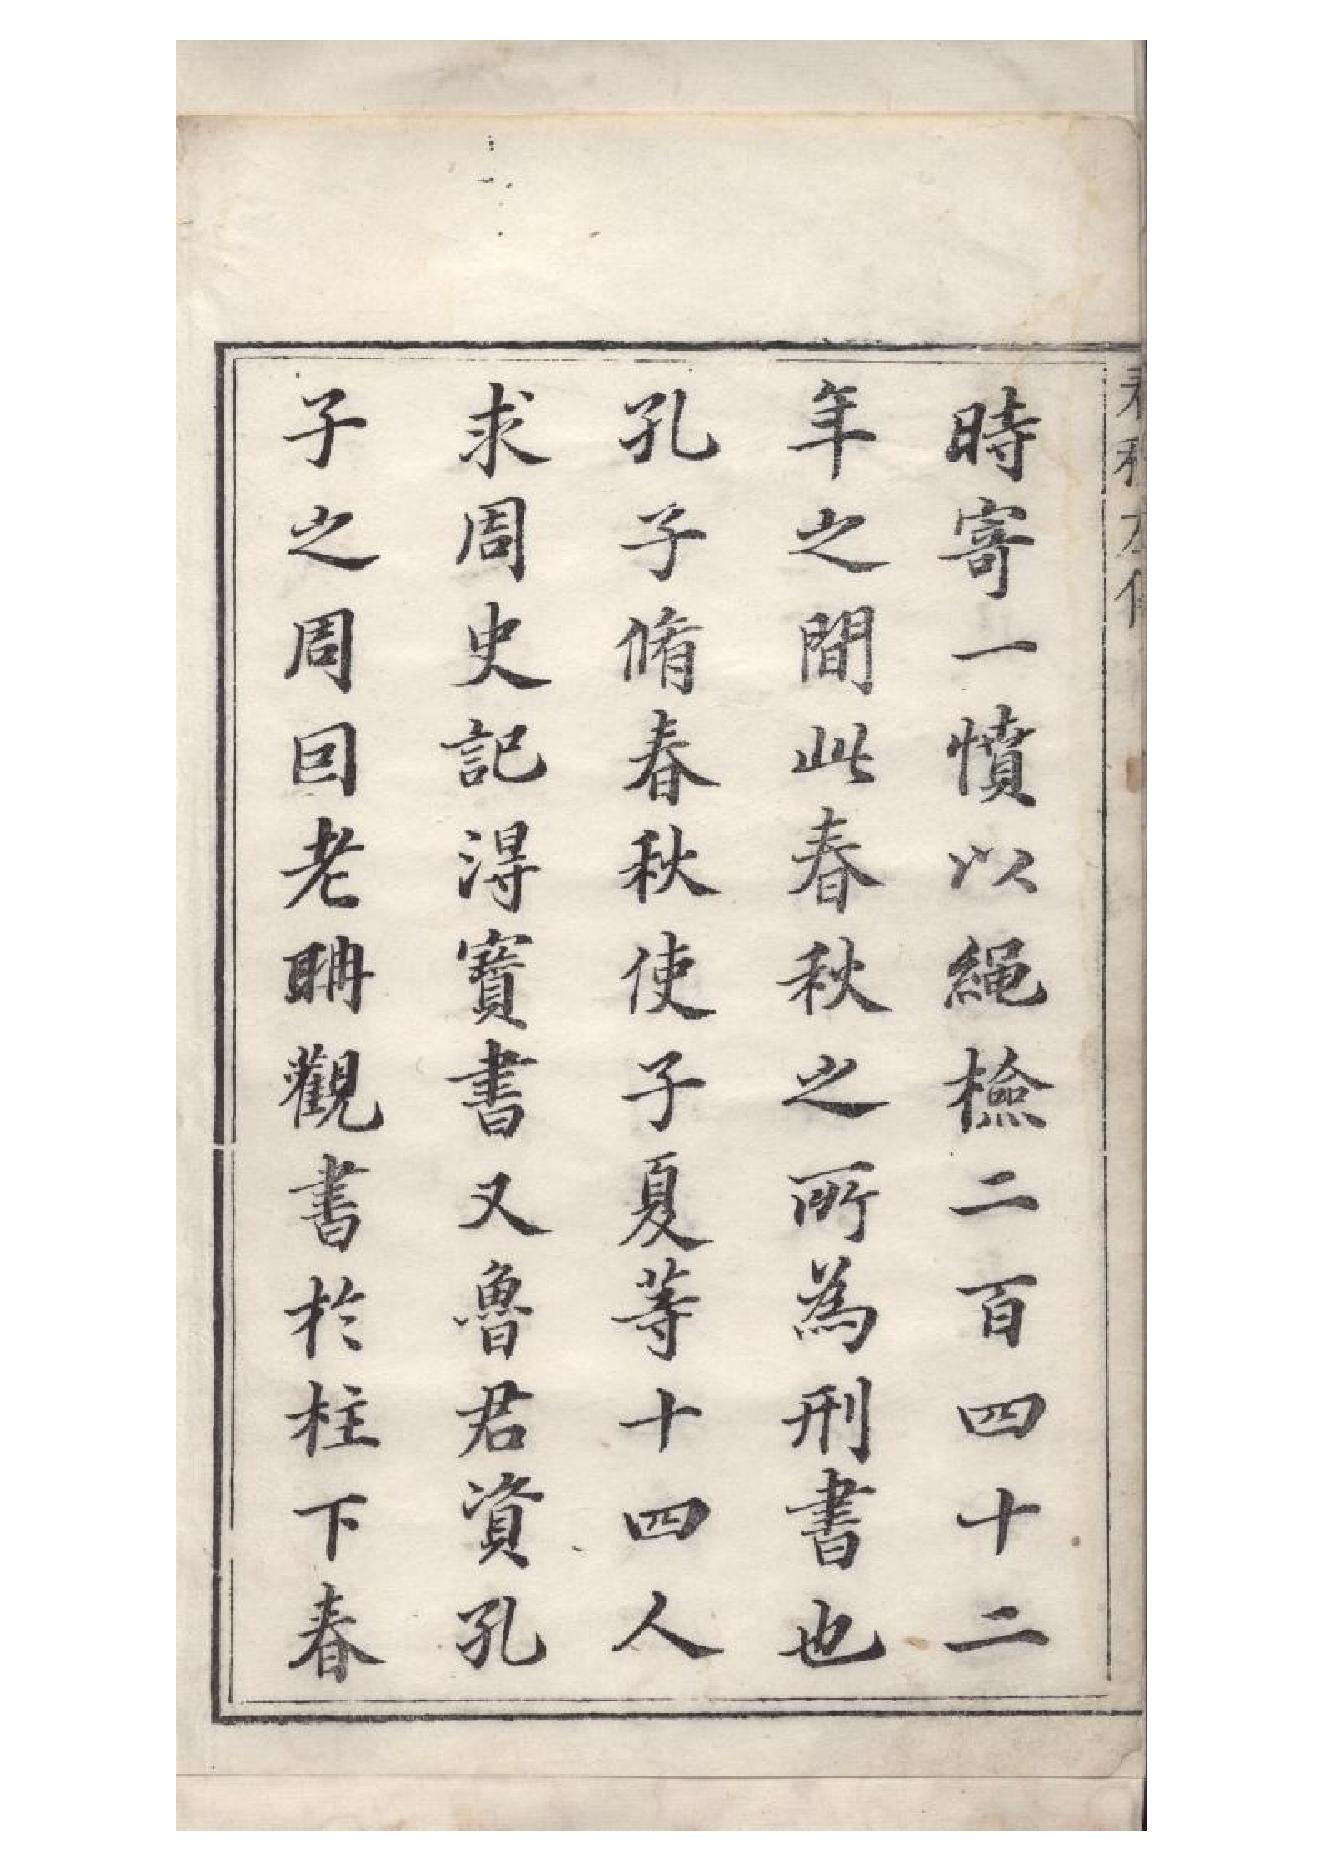 春秋左傳
時寄一憤以繩檢二百四十二
年之間此春秋之所為刑書也
孔子脩春秋使子夏等十四人
求周史記淂寶書又魯君資孔
子之周回老聃觀書於柱下春